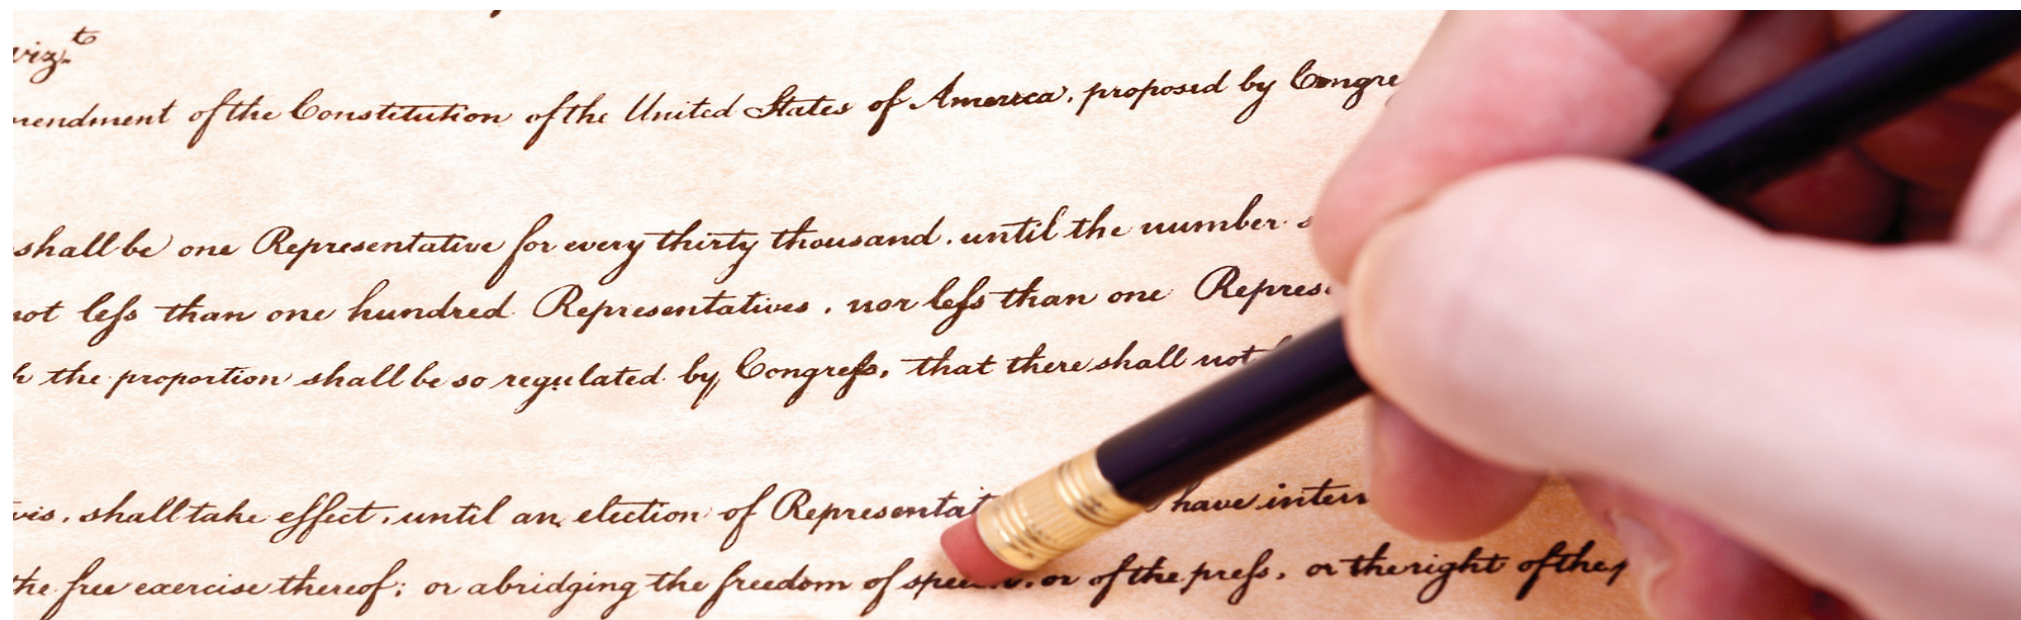 viz.t
mendment of the Constitution of the United States of America, proposed by Congre
shall be one Representative for every thirty thousand, until the number s
not leſs than one hundred Representatives, nor leſs than one Represe
h the proportion shall be so regulated by Congreſs, that there shall not
shall take effect, until an election of Representat have interv
the free exercise thereof; or abridging the freedom of speech, or of the preſs, or the right of the p